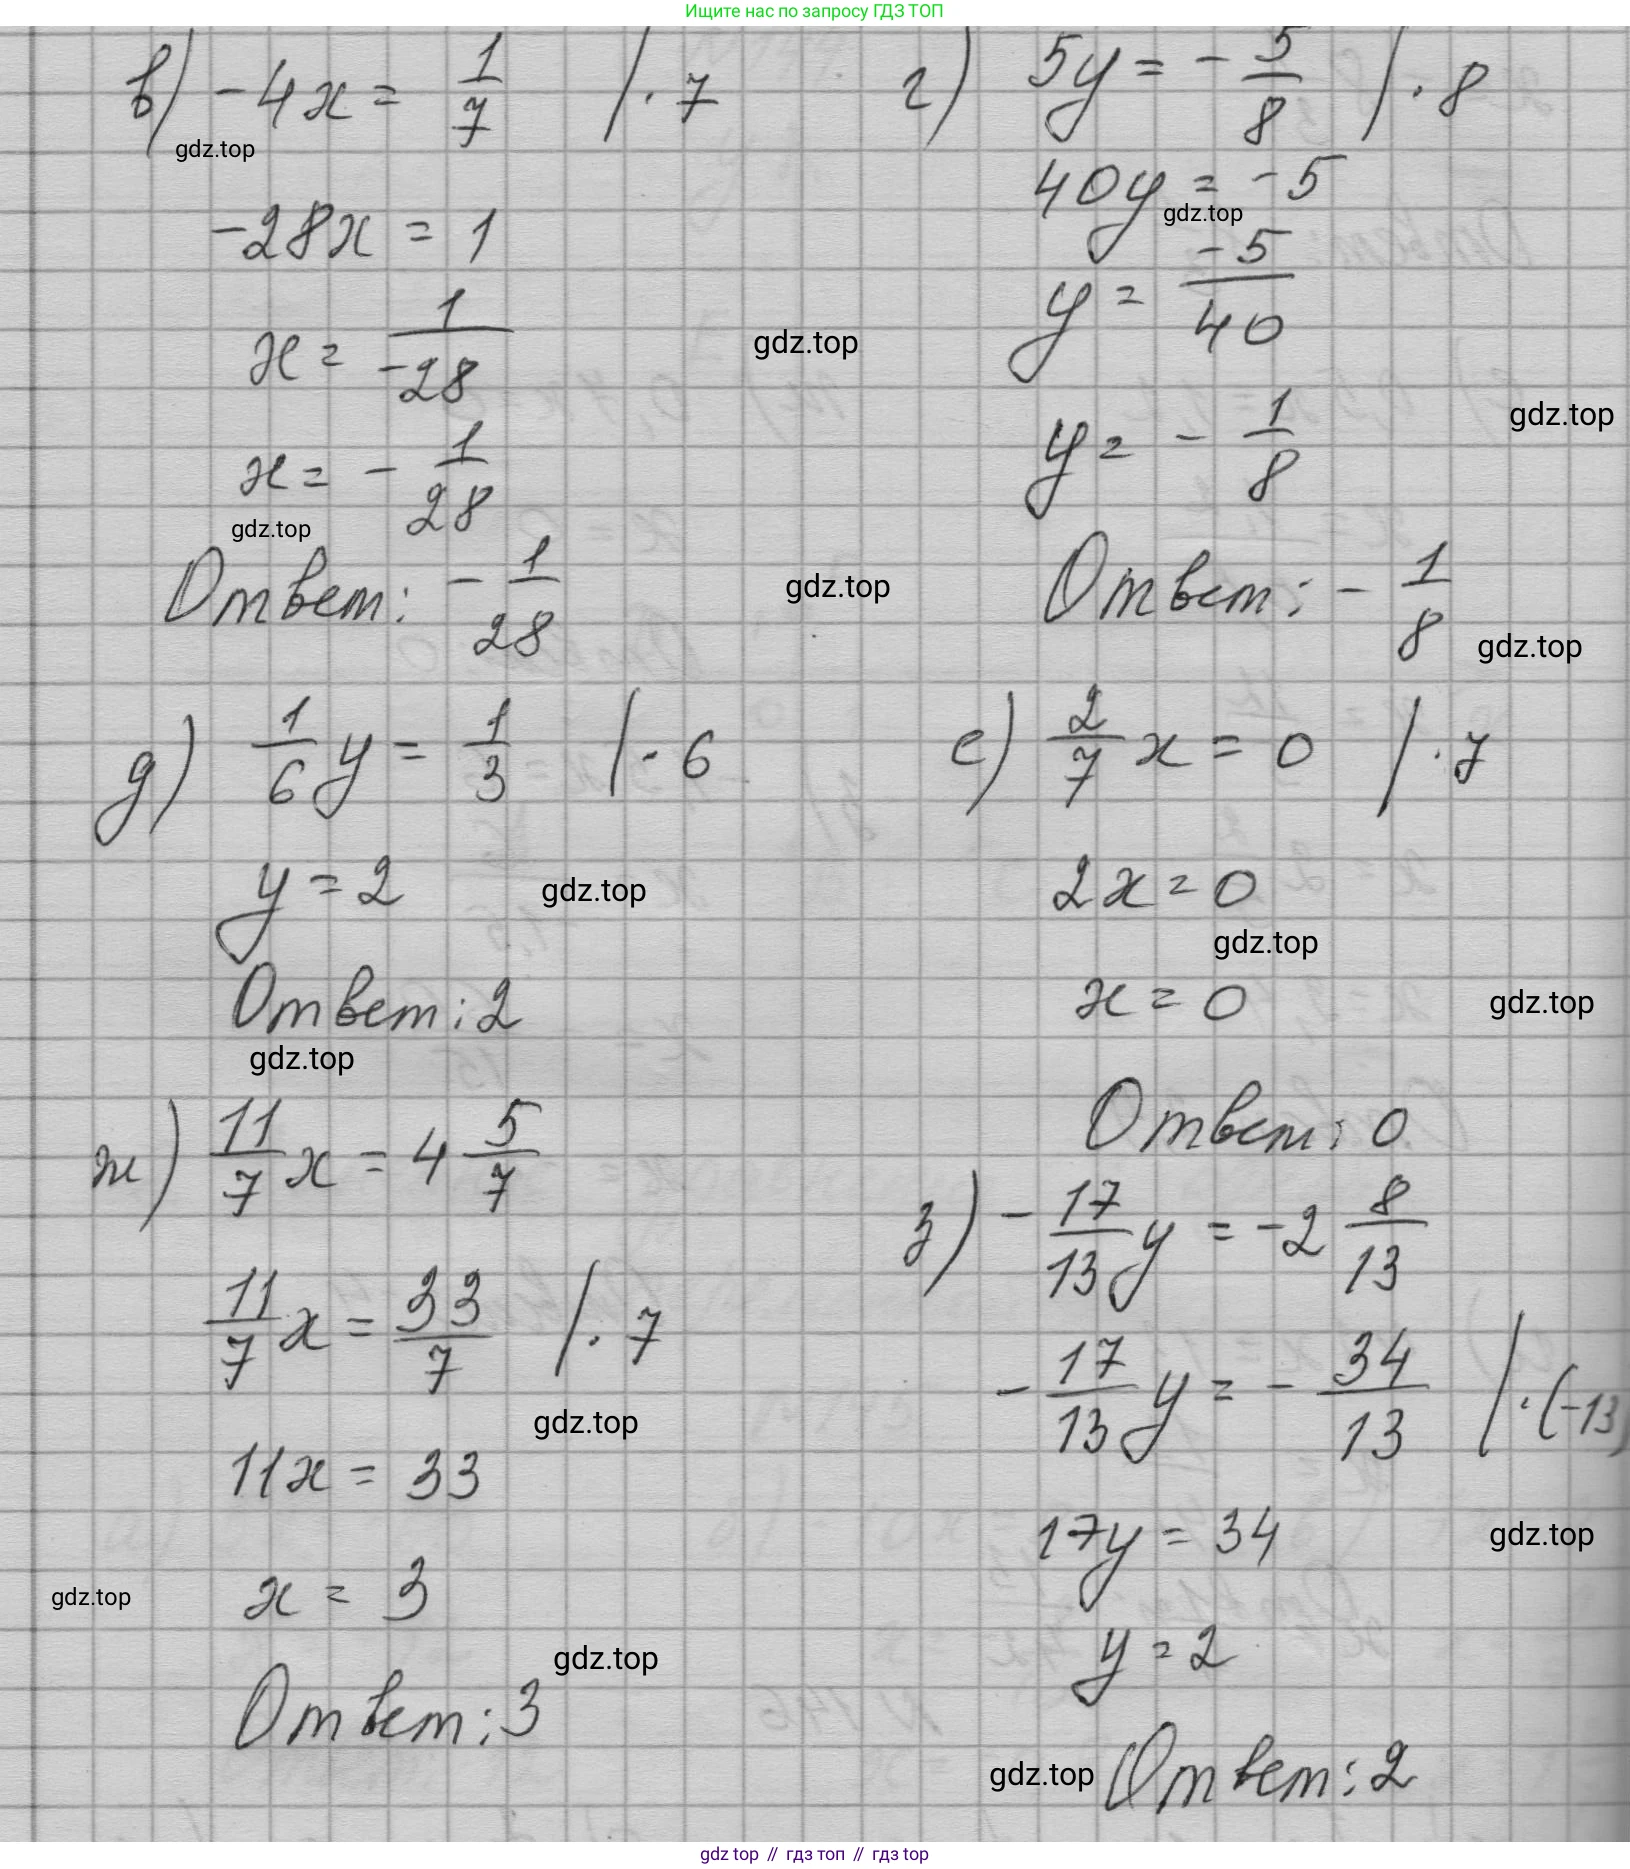 Ищите нас по запросу ГДЗ ТОП
в) -4x = 1/7 | · 7
gdz.top
-28x = 1
x = 1/-28
x = - 1/28
gdz.top
Ответ: - 1/28
г) 5y = - 5/8 | · 8
40y = -5
gdz.top
y = -5/40
gdz.top
y = - 1/8
gdz.top
Ответ: - 1/8
gdz.top
gdz.top
д) 1/6 y = 1/3 | · 6
y = 2
gdz.top
Ответ: 2
gdz.top
е) 2/7 x = 0 | · 7
2x = 0
gdz.top
x = 0
gdz.top
Ответ: 0
ж) 11/7 x = 4 5/7
11/7 x = 33/7 | · 7
gdz.top
11x = 33
x = 3
gdz.top
gdz.top
Ответ: 3
з) - 17/13 y = -2 8/13
- 17/13 y = - 34/13 | · (-13)
17y = 34
gdz.top
y = 2
gdz.top
Ответ: 2
gdz top // гдз топ // gdz top